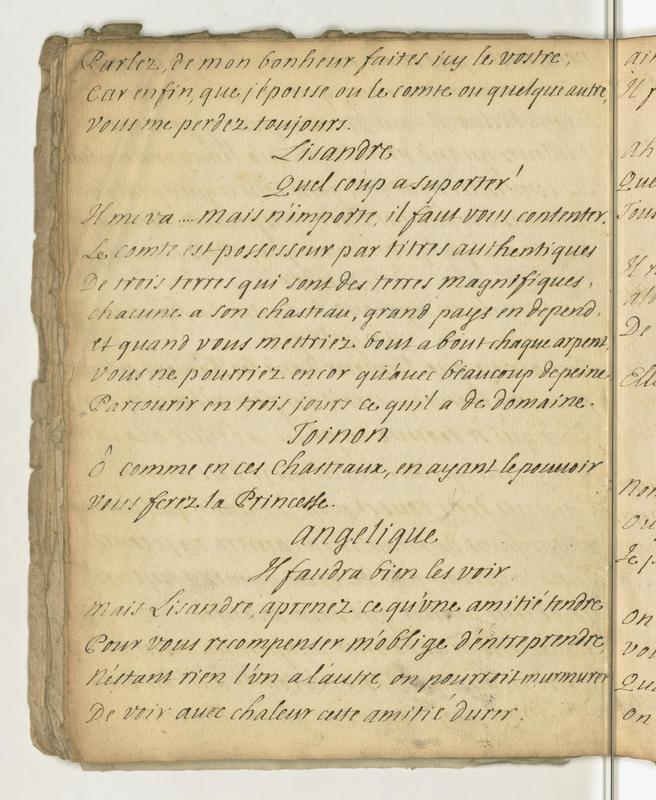 Parlez, de mon bonheur faites icy le vostre,
Car enfin, que j'épouse ou le comte ou quelque autre,
vous me perdez toujours.
Lisandre
Quel coup a suporter!
Il me va .... mais n'importe, il faut vous contenter.
Le comte est possesseur par titres authentiques
De trois terres qui sont des terres magnifiques,
chacune a son chasteau, grand pays en depend,
et quand vous mettriez bout a bout chaque arpent,
vous ne pourriez encor qu'avec beaucoup de peine
Parcourir en trois jours ce quil a de domaine.
Toinon
Ô comme en ces chasteaux, en ayant le pouvoir
vous ferez la Princesse.
angelique
Il faudra bien les voir.
mais Lisandre, aprenez ce qu'vne amitié tendre
Pour vous recompenser m'oblige d'entreprendre,
N'éstant rien l'vn a l'autre, on pourroit murmurer
De voir avec chaleur cette amitié durer.